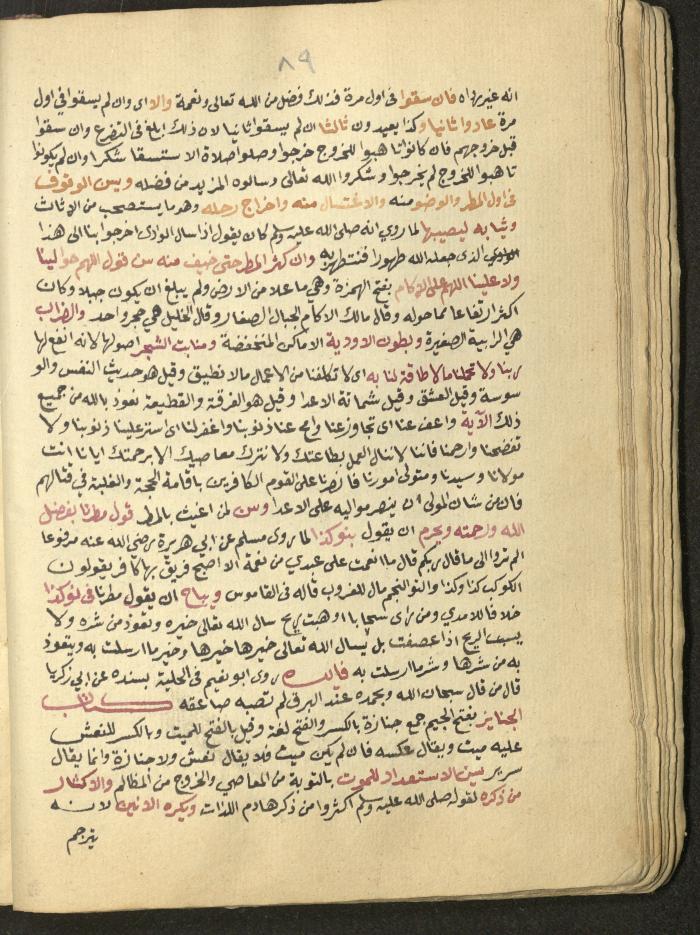 ٨٩
انه غير رداه فان سقوا فى اول مرة فذلك فضل من الله تعالى ونعمة والا اى وان لم يسقوا فى اول
مرة عادوا ثانيا وكذا يعيدون ثالثا ان لم يسقوا ثانيا لان ذلك ابلغ فى التضرع وان سقوا
قبل خروجهم فان كانوا تاهبوا للخروج خرجوا وصلوا صلاة الاستسقا شكرا وان لم يكونوا
تاهبوا للخروج لم يخرجوا وشكروا الله تعالى وسالوه المزيد من فضله ويسن الوقوف
فى اول المطر والوضو منه والاغتسال منه واخراج رحله وهو ما يستصحب من الاثاث
وثيابه ليصيبها لما روي انه صلى الله عليه وسلم كان يقول اذا سال الوادى اخرجوا بنا الى هذا
الوادي الذى جعله الله طهورا فنتطهر به وان كثر المطر حتى خيف منه سن قول اللهم حوالينا
ولا علينا اللهم على الاكام بفتح الهمزة وهى ما علا من الارض ولم يبلغ ان يكون جبلا وكان
اكثر ارتفاعا مما حوله وقال مالك الاكام الجبال الصغار وقال الخليل هى حجر واحد والظراب
هى الرابية الصغيرة وبطون الاودية الاماكن المنخفضة ومنابت الشجر اصولها لانه انفع لها
ربنا ولا تحملنا ما لا طاقة لنا به اى لا تكلفنا من الاعمال ما لا نطيق وقيل هو حديث النفس والو
سوسة وقيل العشق وقيل شماتة الاعدا وقيل هو الفرقة والقطيعة نعوذ بالله من جميع
ذلك الآية واعف عنا اى تجاوز عنا وامح عنا ذنوبنا واغفر لنا اى استر علينا ذنوبنا ولا
تفضحنا وارحمنا فاننا لا ننال العمل بطاعتك ولا نترك معاصيك الا برحمتك ايانا انت
مولانا وسيدنا ومتولى امورنا فانصرنا على القوم الكافرين باقامة الحجة والغلبة فى قتالهم
فان من شان المولى ان ينصر مواليه على الاعدا وسن لمن اغيث بالمطر قول مطرنا بفضل
الله ورحمته ويحرم ان يقول بنو كذا لما روى مسلم عن ابي هريرة رضي الله عنه مرفوعا
الم تروا الى ما قال ربكم قال ما انعمت على عبدي من نعمة الا اصبح فريق بها كافر يقولون
الكوكب كذا وكذا والنوالنجم مال للغروب قاله فى القاموس ويباح ان يقول مطرنا فى نو كذا
خلافا للامدي ومن راى سحابا او هبت ريح سال الله تعالى خيره وتعوذ من شره ولا
يسب الريح اذا عصفت بل يسال الله تعالى خيرها خيرها وخير ما ارسلت به ويتعوذ
به من شرها وشر ما ارسلت به فايده روى ابو نعيم فى الحلية بسنده عن ابي زكريا
قال من قال سبحان الله وبحمده عند البرق لم تصبه صاعقه كتاب
الجنايز بفتح الجيم جمع جنازة بالكسر والفتح لغة وقيل بالفتح للميت وبالكسر للنعش
عليه ميت ويقال عكسه فان لم يكن ميت فلا يقال نعش ولا جنازة وانما يقال
سرير يسن الاستعداد للموت بالتوبة من المعاصي والخروج من المظالم والاكثار
من ذكره لقوله صلى الله عليه وسلم اكثروا من ذكر هادم اللذات ويكره الانين لانه
يترجم